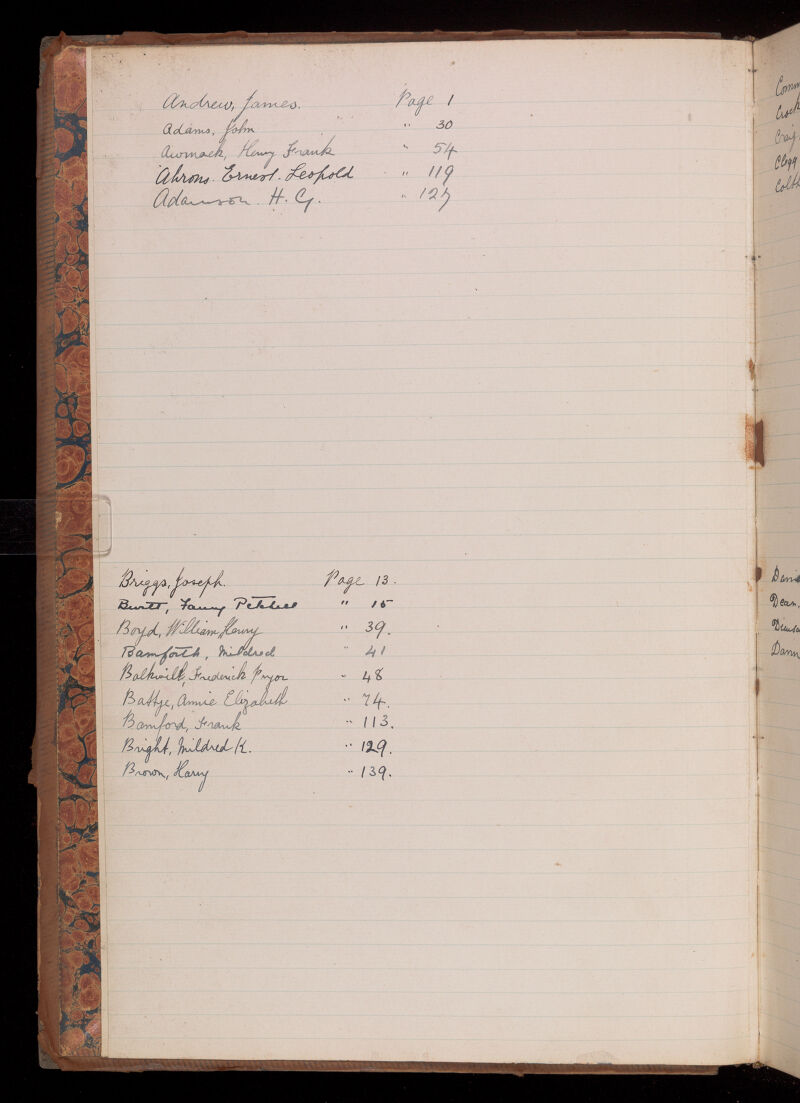 Andrew, James. Page 1
Adams, John " 30
Awmack, Henry Frank " 54
Ahrons. Ernest. Leopold " 119
Adamson. H. G. " 127
Briggs, Joseph. Page 13.
Fanny " 15
Boyd, William Henry " 39.
Bamforth, Mildred " 41
Balkwill, Frederick Pryor " 48
Battye, Annie Elizabeth " 74.
Bamford, Frank " 113.
Bright, Mildred K. " 129.
Brown, Harry " 139.
Craig
Clegg
Dean.